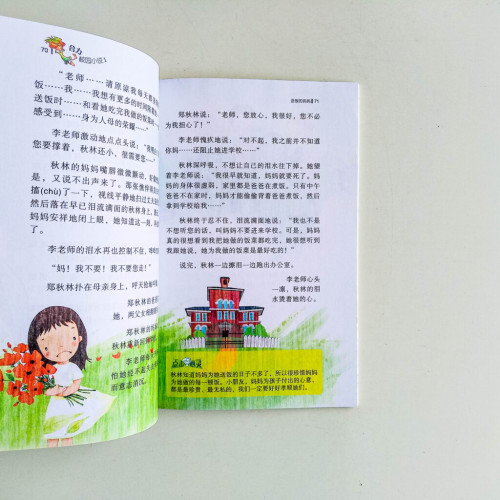 70
校园小说1
“老师……请原谅我每天都
饭……我……我想有更多的时间陪
送饭时……和看她吃完我做的饭菜
感受到……身为人母的荣耀……”
李老师激动地点点头：
您要撑着，秋林还小，很需要您……”
秋林的妈妈嘴唇微微颤动，好
是，又说不出声来了。那张憔悴
搐(chù)了一下，视线平静地扫过丈夫
然后落在早已泪流满面的秋林身上，
妈妈安祥地闭上眼，她知道这一刻，
了。
李老师的泪水再也控制不住，
“妈！我不要！我不要您走！”
郑秋林扑在母亲身上，呼天抢
郑秋林的爸
她，两父女相
郑秋林的
秋林重新
李老师
怕她经不起
而意志消沉。
71
郑秋林说：“老师，您放心，我很好，您不必
为我担心了！”
李老师愧疚地说：“对不起，我之前并不知道
你妈……还阻止她进学校……”
秋林深呼吸，不想让自己的泪水往下掉。她望
着李老师说：“我很早就知道，妈妈就要死了。妈
妈的身体很虚弱，家里都是爸爸在煮饭。只有中午
爸爸不在家时，妈妈才能偷偷背着爸爸煮饭，然后
拿到学校给我……”
秋林终于忍不住，泪流满面地说：“我也不是
不想听您的话，叫妈妈不要进来学校。可是，妈妈
真的很想看到我把她做的饭菜都吃完，她很想听到
我跟她说，她为我做的饭菜是最好吃的！”
说完，秋林一边擦泪一边跑出办公室。
李老师心头
一凛，秋林的泪
水烫着她的心。
点点心灵
秋林知道妈妈为她送饭的日子不多了，所以很珍惜妈妈
为她做的每一顿饭。小朋友，妈妈为孩子付出的心意，
都是最珍贵、最无私的，我们一定要好好孝顺她们。